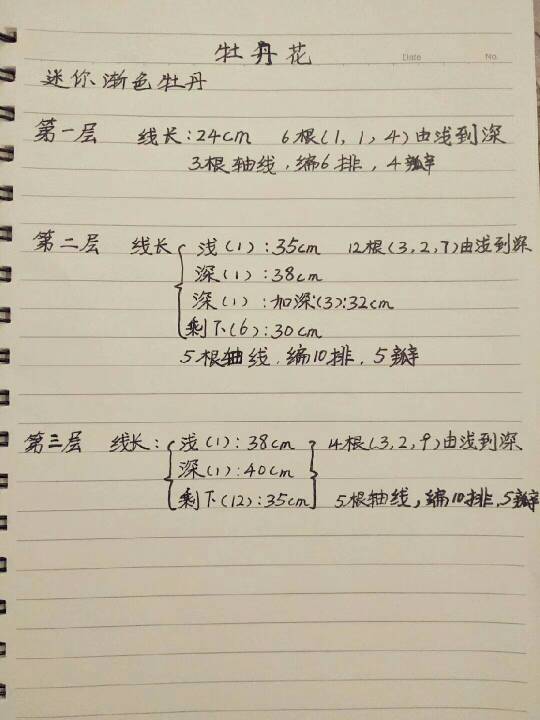 牡丹花
Date No.
迷你渐色牡丹
第一层 线长:24cm 6根(1,1,4)由浅到深
3根轴线,编6排,4瓣
第二层 线长 浅(1):35cm 12根(3,2,7)由浅到深
深(1):38cm
深(1):加深:(3):32cm
剩下(6):30cm
5根轴线,编10排,5瓣
第三层 线长: 浅(1):38cm 14根(3,2,9)由浅到深
深(1):40cm
剩下(12):35cm 5根轴线,编10排,5瓣